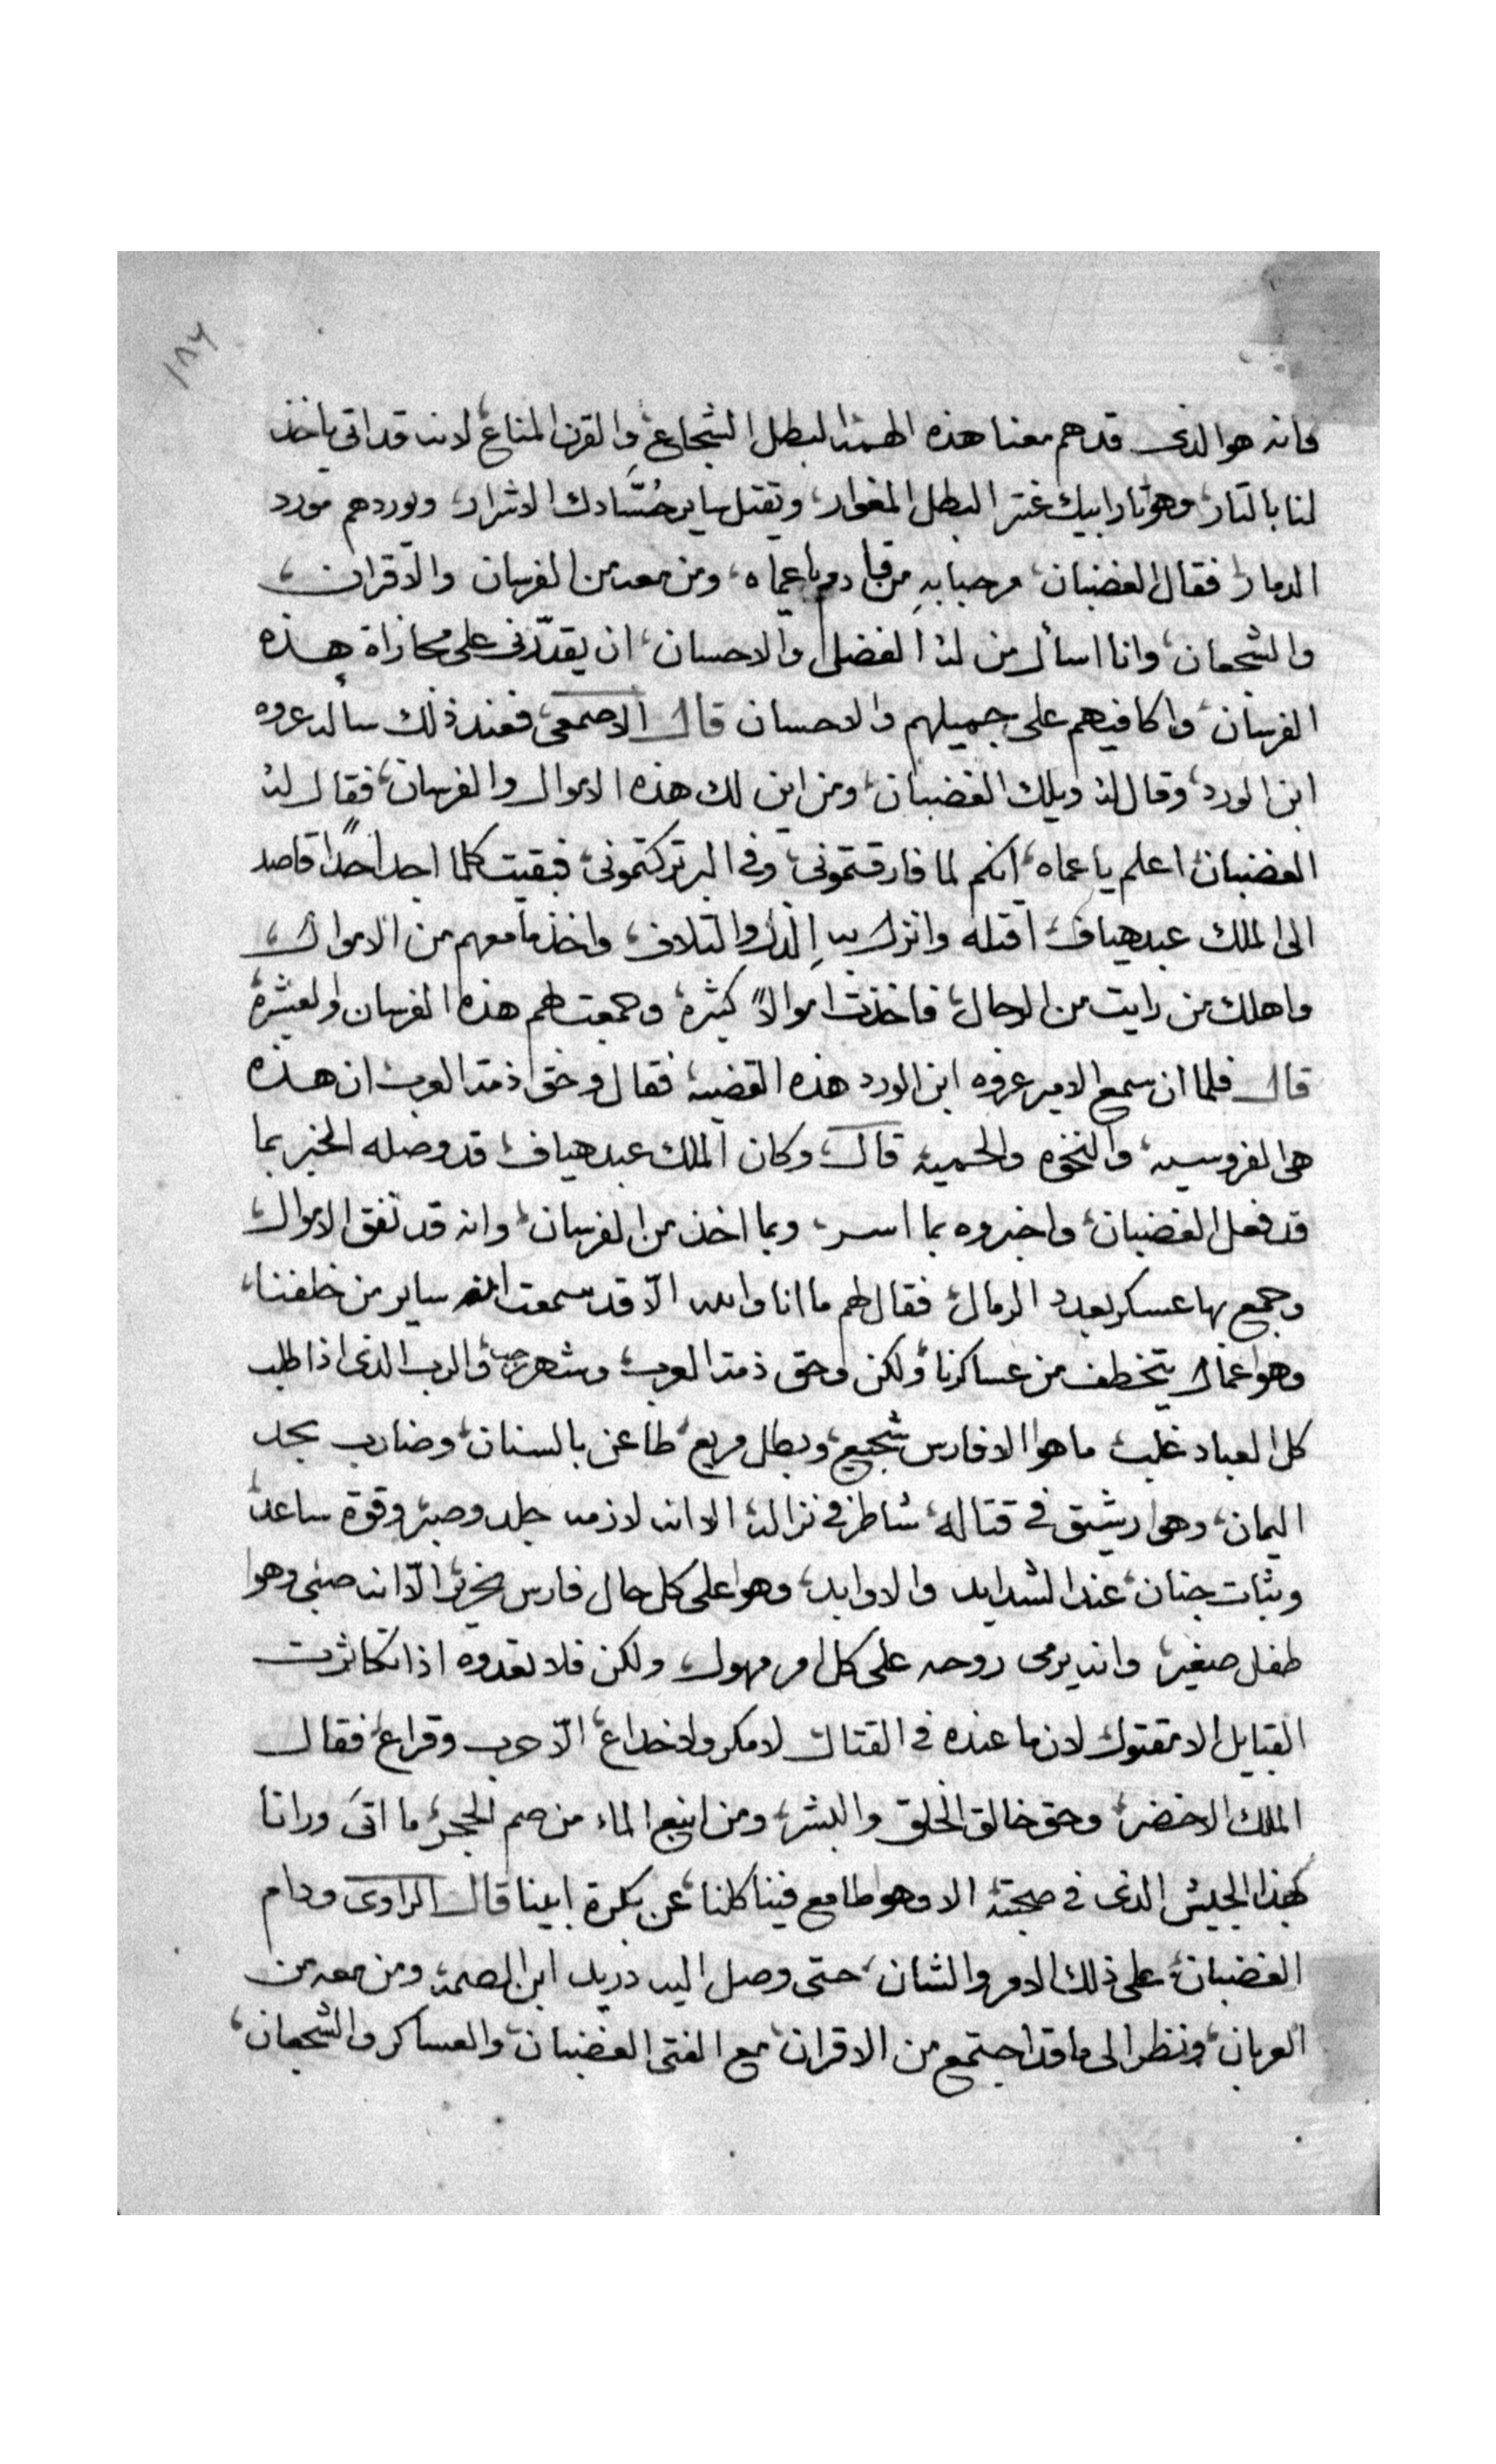 ١٨٦
فانه هو الذى قد هم معنا هذه الهمة البطل الشجاع، والقرن المناع، لانه قد اتى ياخذ
لنا بالتار، وهو تار ابيك عنتر البطل المغوار، ويقتل ساير حُسَّادك الاشرار، ويوردهم مورد
الدمار، فقال الغضبان، مرحبا به من قبل دم يا عماه، ومن معه من الفرسان والاقران،
والشجعان، وانا اسأل من له الفضل والاحسان، ان يقدّرنى على مجازاة هذه
الفرسان، واكافيهم على جميلهم والاحسان قال الاصمعى، فعند ذلك ساله عروه
ابن الورد، وقال له ويلك الغضبان، ومن اين لك هذه الاموال والفرسان، فقال له
الغضبان، اعلم يا عماه، انكم لما فارقتمونى، وفى البر تركتمونى، فبقيت كلما اجد احدًا قاصد
الى الملك عبد هياف، اقتله وانزل به الذل والتلاف، واخذ ما معهم من الاموال،
واهلك من رايت من الرجال، فاخذت اموالاً كثيرة، وجمعت لهم هذه الفرسان والعشيرة
قال فلما ان سمع الامير عروه ابن الورد هذه القضيه، فقال وحق ذمة العرب ان هذه
هى الفروسيه، والنخوه والحميه قال وكان الملك عبد هياف، قد وصله الخبر بما
قد فعل الغضبان، واخبروه بما اسر، وبما اخذ من الفرسان، وانه قد نفق الاموال،
وجمع بها عسكر بعدد الرمال، فقال لهم ما انا والله الّا قد سمعت انه ساير من خلفنا،
وهوا عمال يتخطف من عساكرنا، ولكن وحق ذمة العرب، وشهر رجب، والرب الذى اذا طلب
كل العباد غلب، ما هوا الا فارس شجيع، وبطل مريع، طاعن بالسنان، وضارب بحد
اليمان، وهوا رشيق فى قتاله، شاطر فى نزاله، الا انه لازمه جلد وصبر، وقوة ساعد،
وثبات جنان، عند الشدايد والاوابد، وهوا على كل حال فارس نحرير، الّا انه صبى وهوا
طفل صغير، وانه يرمى روحه على كل امر مهول، ولكن فلا تعدوه اذا تكاثرت
القبايل الا مقتول لان ما عنده فى القتال لا مكر ولا خداع، الّا حرب وقراع، فقال
الملك الاخضر، وحق خالق الخلق والبشر، ومن انبع الماء من صم الحجر، ما اتى ورانا
بهذا الجيش الذى فى صحبته الا وهوا طامع فينا كلنا، عن بكرة ابينا قال الراوى ودام
الغضبان، على ذلك الامر والشان، حتى وصل اليه دريد ابن الصمه، ومن معه من
العربان، ونظر الى ما قد اجتمع من الاقران، مع الفتى الغضبان، والعساكر والشجعان،